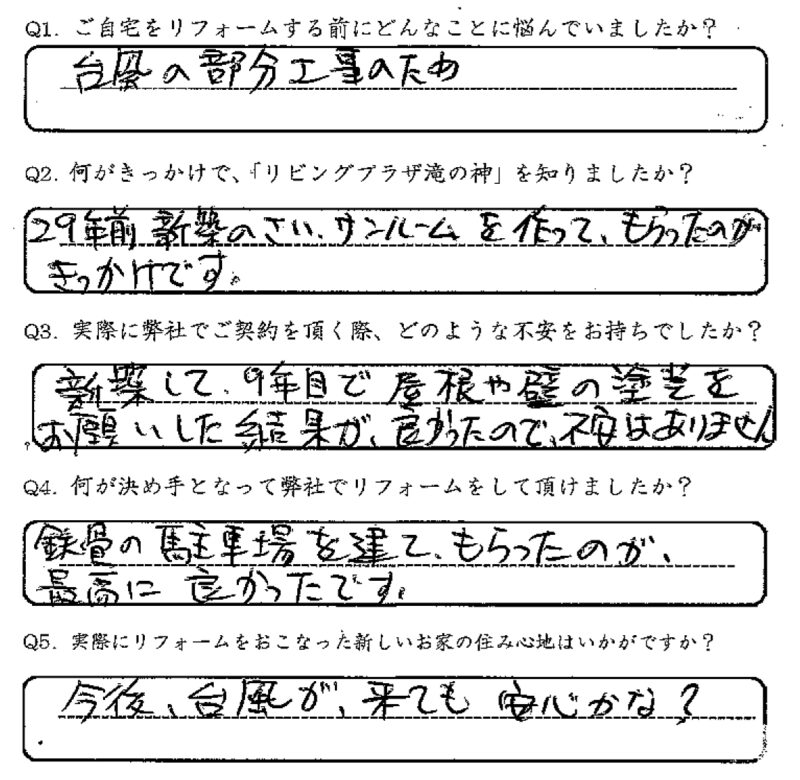 Q1. ご自宅をリフォームする前にどんなことに悩んでいましたか？
台風の部分工事のため
Q2. 何がきっかけで、「リビングプラザ滝の神」を知りましたか？
29年前新築のさい、サンルームを作って、もらったのが
きっかけです。
Q3. 実際に弊社でご契約を頂く際、どのような不安をお持ちでしたか？
新築して、9年目で屋根や壁の塗装を
お願いした結果が、良かったので、不安はありません
Q4. 何が決め手となって弊社でリフォームをして頂けましたか？
鉄骨の駐車場を建て、もらったのが、
最高に良かったです。
Q5. 実際にリフォームをおこなった新しいお家の住み心地はいかがですか？
今後、台風が、来ても安心かな？